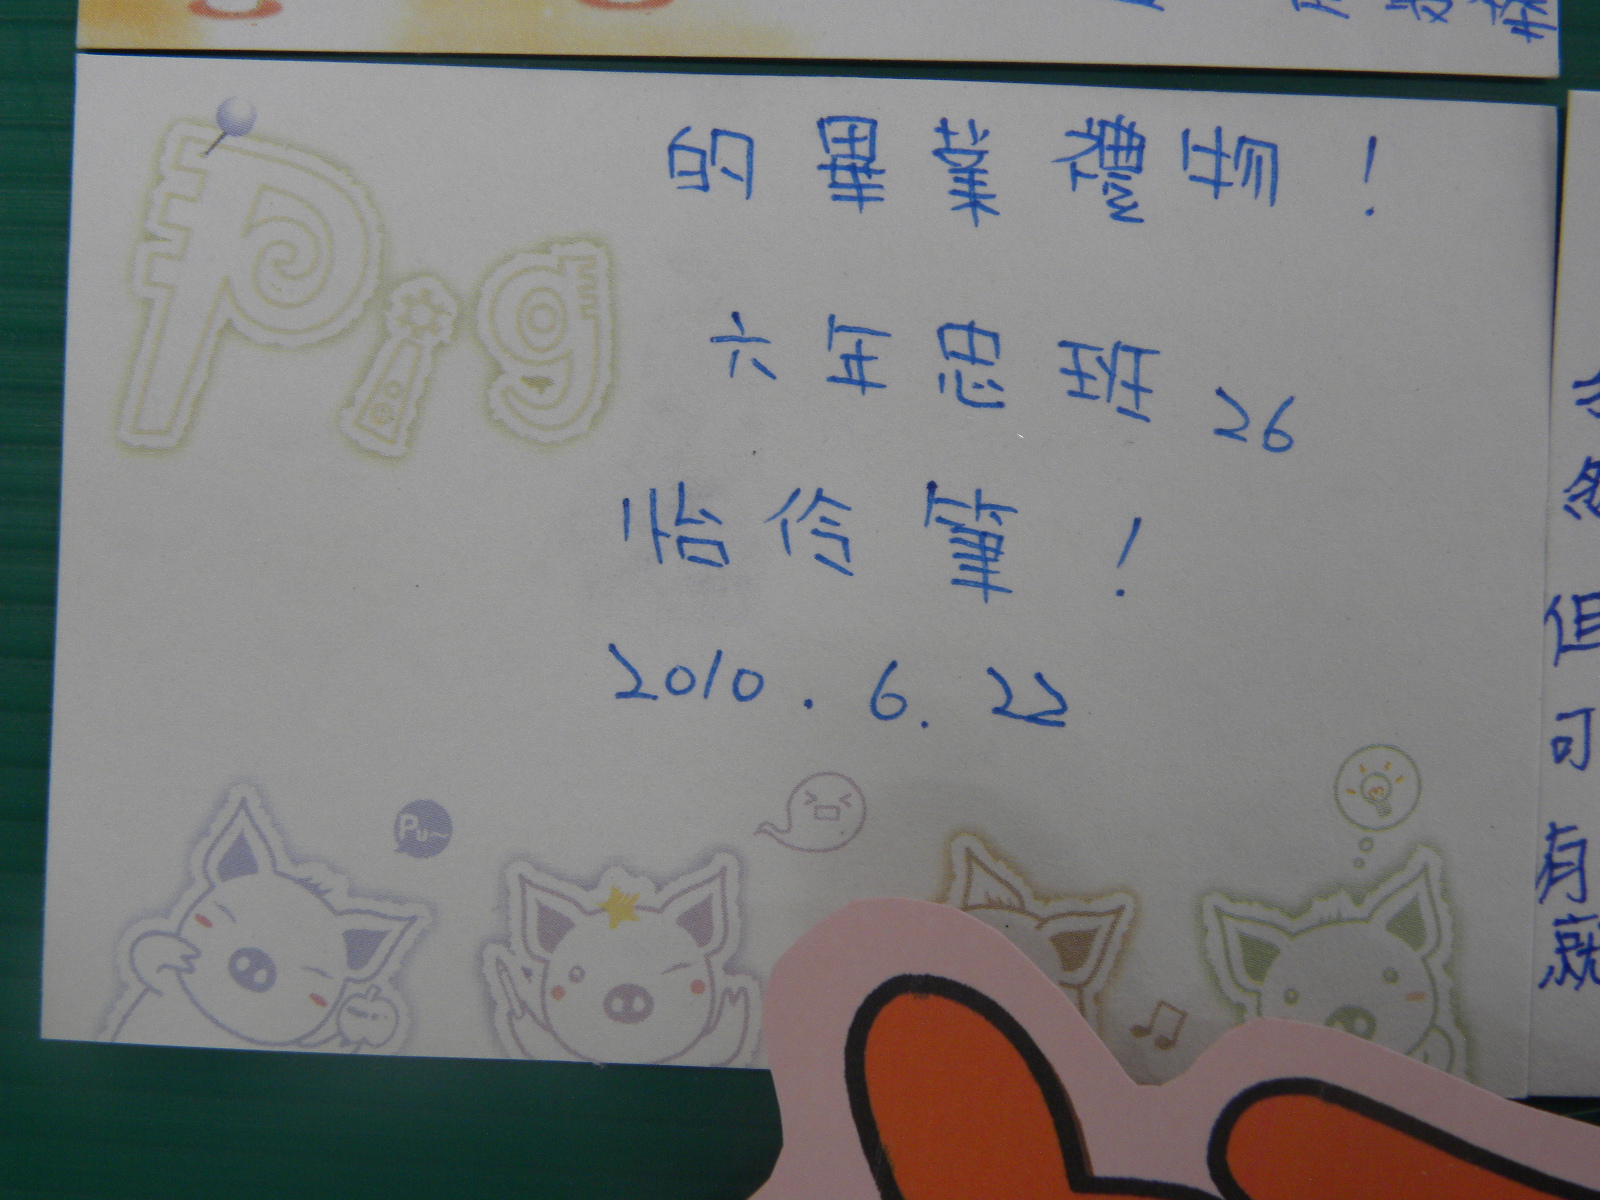 的畢業禮物！
Pig
六年思班26
怡伶筆！
2010.6.22
Pu~
值
可
有
就